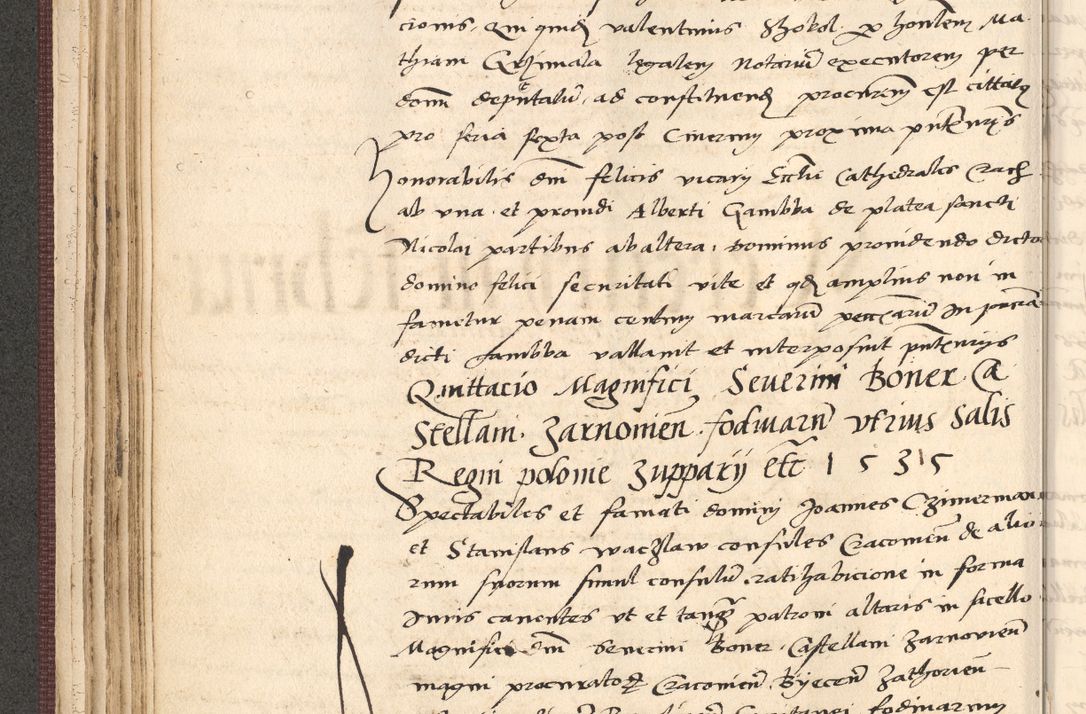 cionis, quiquid valentinus Skobel per honlem Ma-
thiam Grzimala legalem Notariu executorem per
domi deputatu, ad constituend procurem est cittatus
pro feria sexta post Cinerum proxima pntxntis
honorabilis dni felicis vicarij Eccle Cathedralis Crac
ab una et providi Alberti Gambba de platea sancti
Nicolai partibus ab altera, dominus providendo dicto
domino felici securitati vite et qd amplius non in
fametur penam centum marcaru pecciaru In
dicti Gambba vallavit et interposuit
Quittacio Magnifici Severini Boner Ca
Stellani Zarnovien fodinaru utrius Salis
Regni polonie Zupparij etc 1535
Spectabiles et famati domini Joannes Czimerman
et Stanislaus waczlaw consules Cracovien de alio
rum suorum simul consulu ratihabicione in forma
Juris canentes ut et tanq patroni altaris in sacello
Magnifici dni Severini Boner Castellani Zarnovien
magni procuratoris Cracovien, Byecen Zathorien
fodinarum